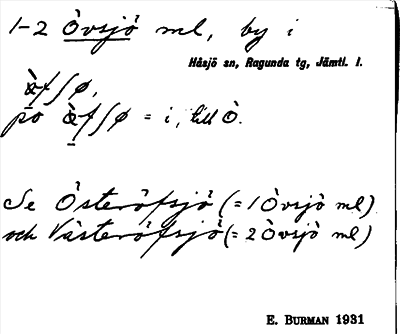 1-2 Övsjö ml, by i
Håsjö sn, Ragunda tg, Jämtl. l.
æ̀f∫ø,
po æ̀f∫ø = i, till Ö.
Se Österöfsjö (= 1 Övsjö ml)
och Västeröfsjö (= 2 Övsjö ml)
E. BURMAN 1931